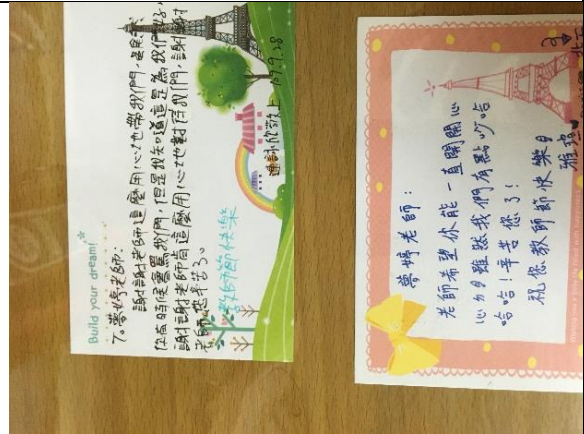 Build your dream!
To夢婷老師:
謝謝老師這麼用心地帶我們,
你有時候會罵我們,但是我知道這是為我們好,
謝謝老師肯這麼用心地對待我們,謝謝
老師您辛苦了。
教師節快樂
敬上 109.9.28
夢婷老師:
老師希望你能一直開開心
心力雖然我們有點吵哈
哈哈!辛苦您了!
祝您教師節快樂